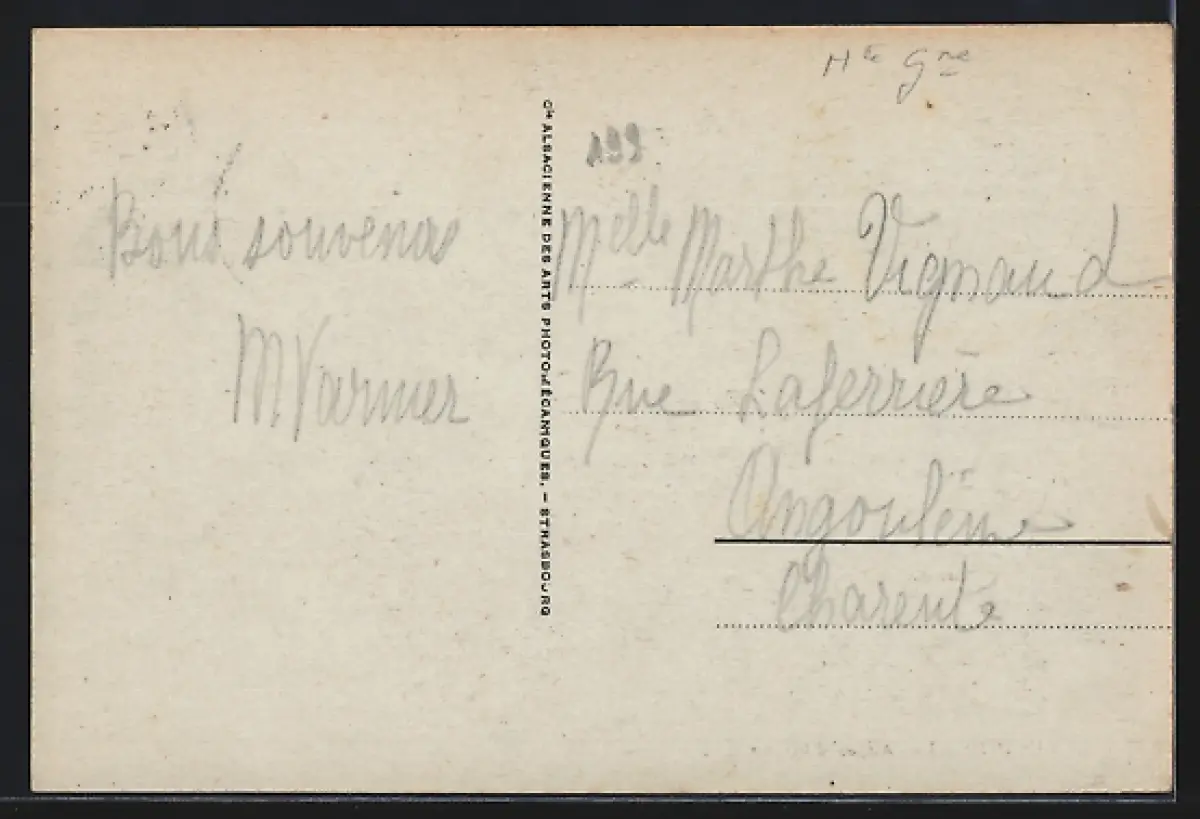 Hte Gne
Bons souvenirs
Melle Marthe Vignaud
Rue Laferrière
Angoulême
Charente
Cie ALSACIENNE DES ARTS PHOTOMÉCANIQUES. — STRASBOURG